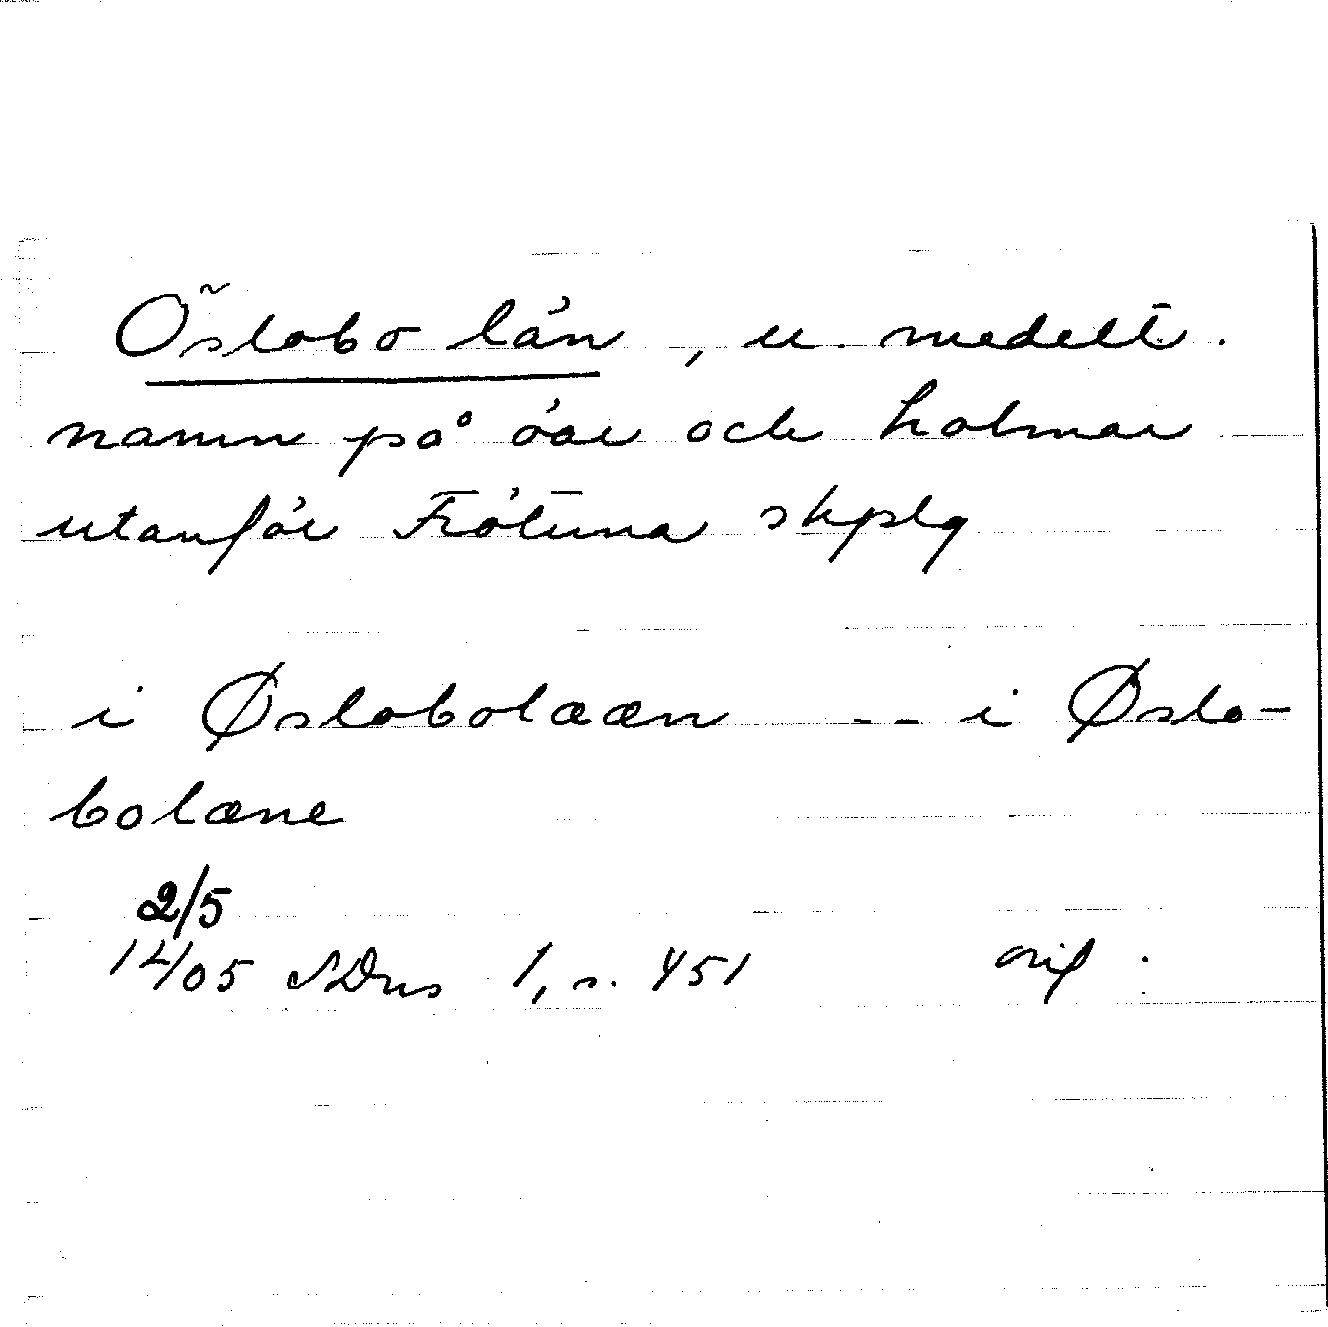 Öslobo län, u. medelt.
namn på öar och holmar
utanför Frötuna skplg
i Øslobolææn -- i Øslo-
bolæne
2/5
1405 SDns 1, s. 451 orig.